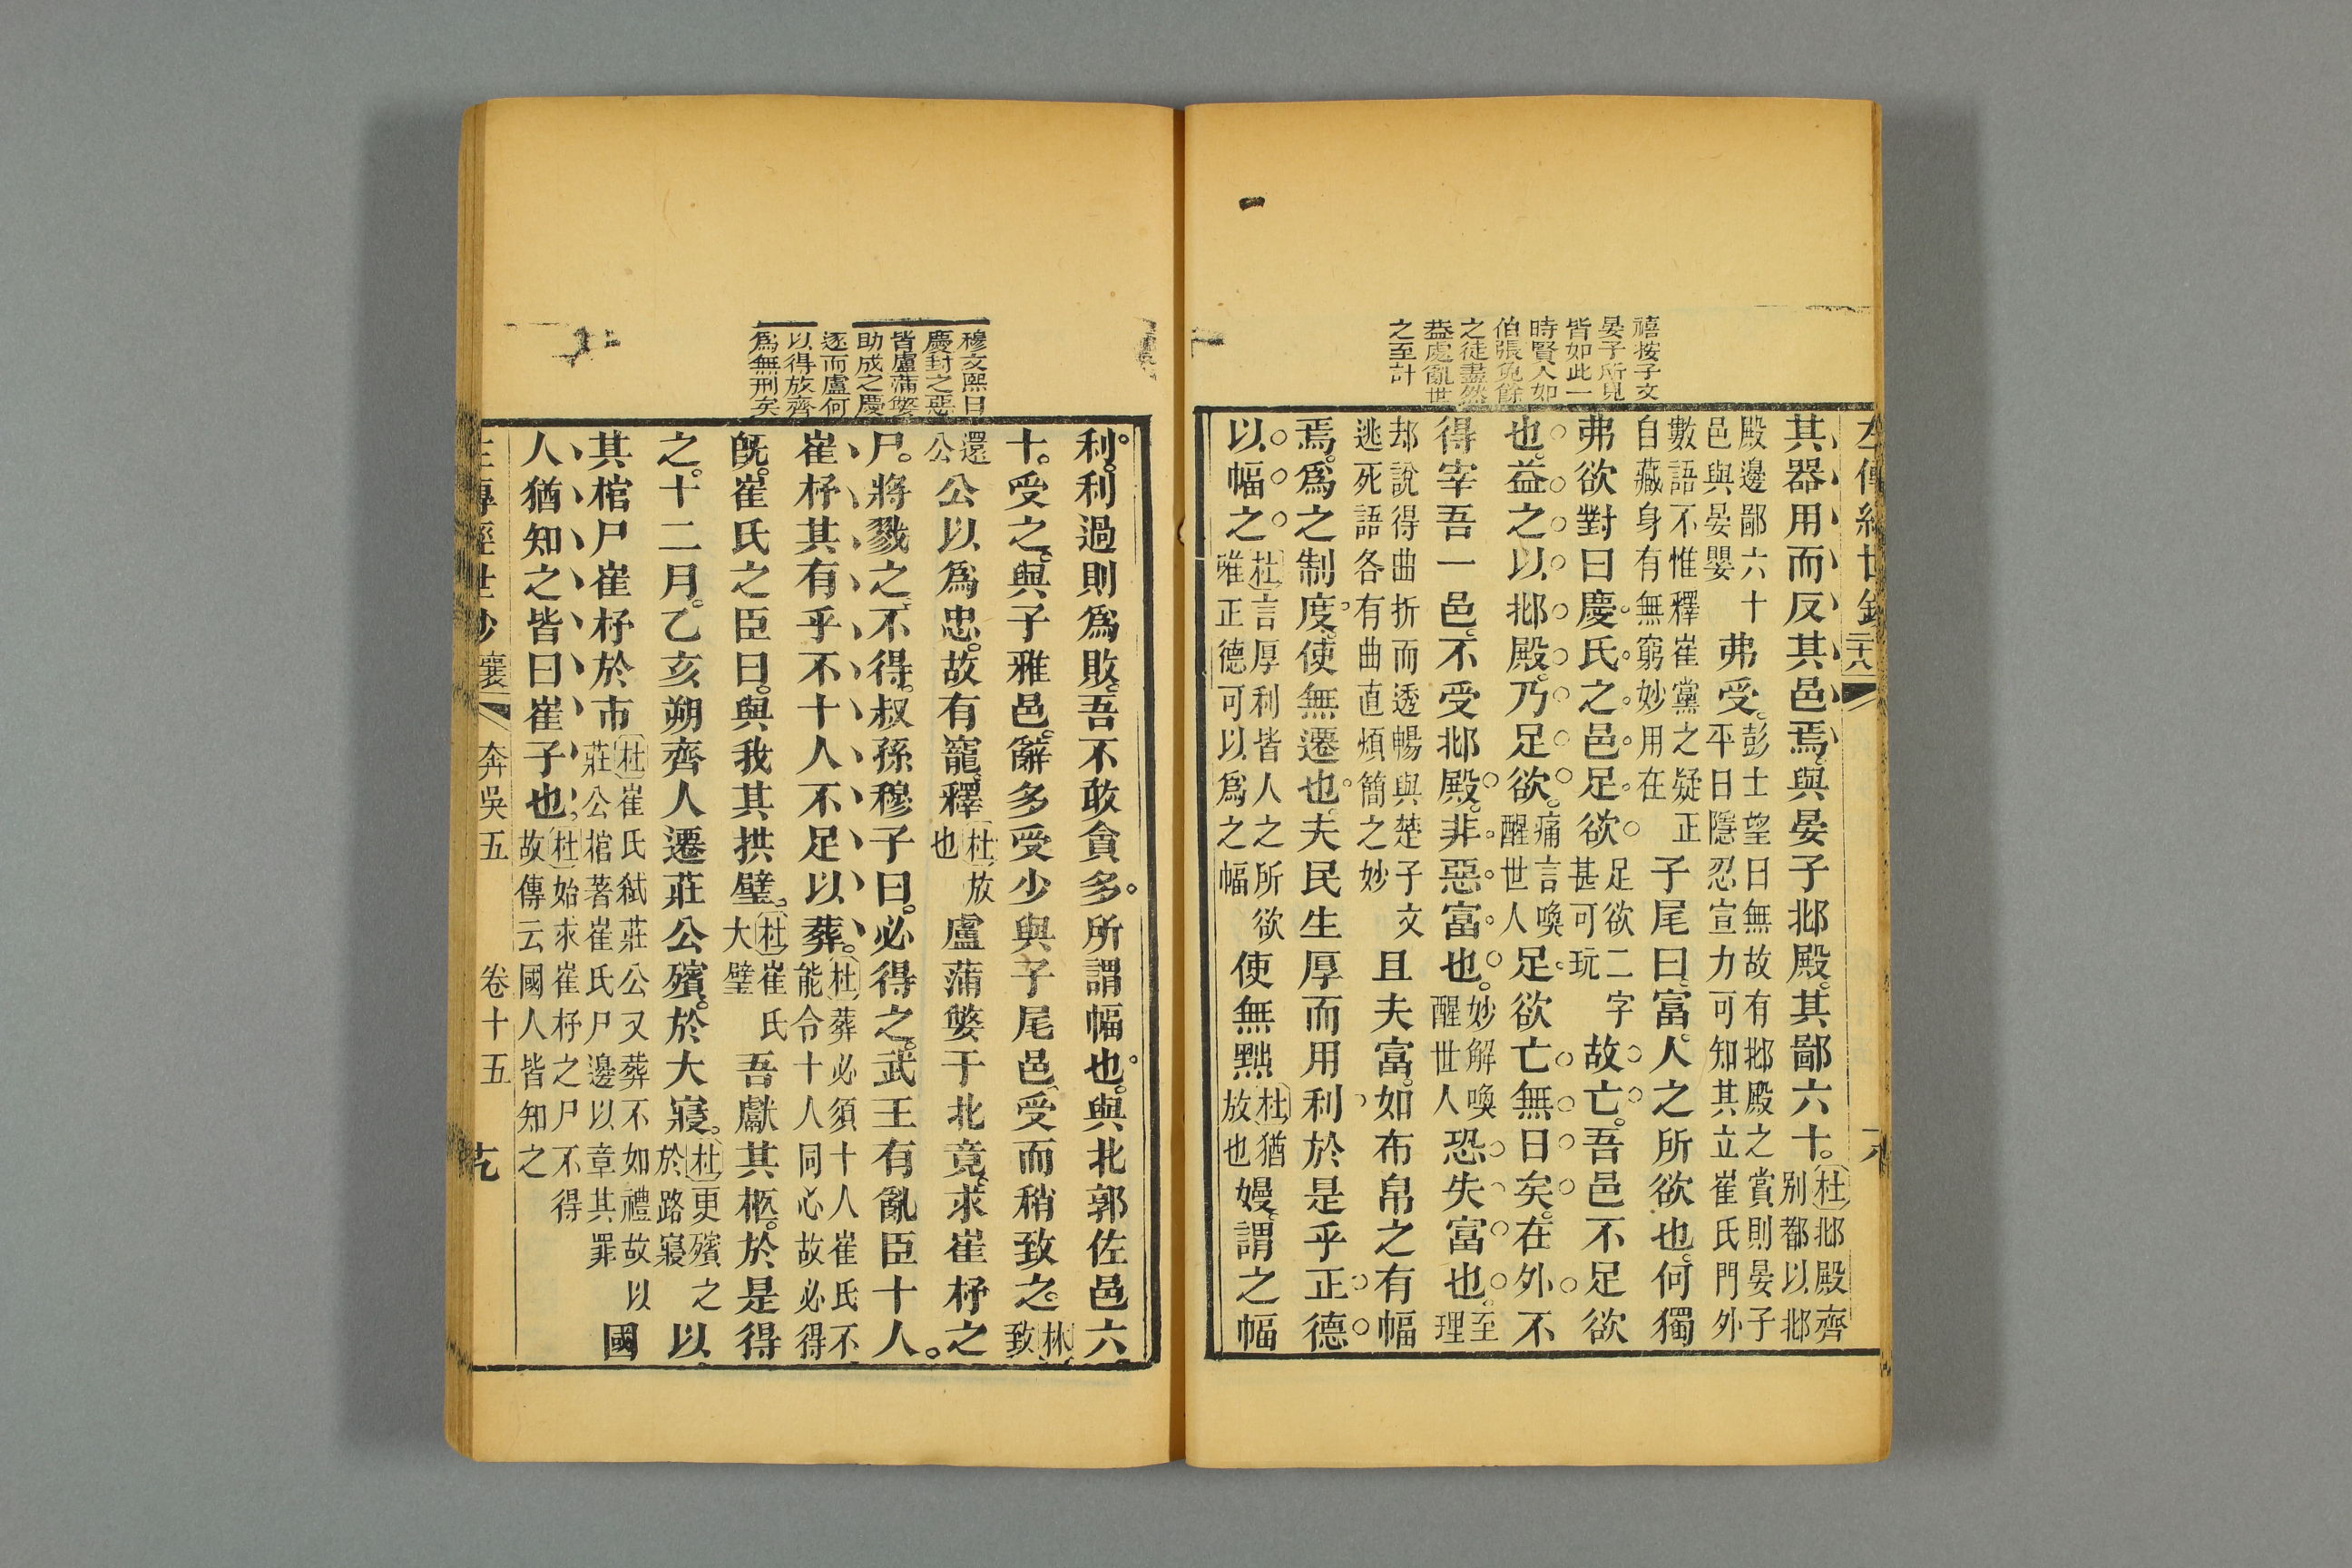 禧按子文
晏子所見
皆如此一
時賢人如
伯張免餘
之徒盡然
益處亂世
之至計
其器用而反其邑焉與晏子邶殿其鄙六十杜邶殿齊別都以邶
殿邊鄙六十邑與晏嬰弗受彭士望曰無故有邶殿之賞則晏子平日隱忍宣力可知其立崔氏門外
數語不惟釋崔黨之疑正自藏身有無窮妙用在子尾曰富人之所欲也何獨
弗欲對曰慶氏之邑足欲足欲二字甚可玩故亡吾邑不足欲
也益之以邶殿乃足欲痛言喚醒世人足欲亡無日矣在外不
得宰吾一邑不受邶殿非惡富也妙解喚醒世人恐失富也至理
却說得曲折而透暢與楚子文逃死語各有曲直煩簡之妙且夫富如布帛之有幅
焉為之制度使無遷也夫民生厚而用利於是乎正德
以幅之杜言厚利皆人之所欲唯正德可以為之幅使無黜杜猶放也嫚謂之幅
穆文熙曰
慶封之惡
皆盧蒲嫳
助成之慶
逐而盧何
以得放齊
為無刑矣
利利過則為敗吾不敢貪多所謂幅也與北郭佐邑六
十受之與子雅邑辭多受少與子尾邑受而稍致之林致
還公公以為忠故有寵釋杜放也盧蒲嫳于北竟求崔杼之
尸將戮之不得叔孫穆子曰必得之武王有亂臣十人
崔杼其有乎不十人不足以葬杜葬必須十人崔氏不能令十人同心故必得
旣崔氏之臣曰與我其拱璧杜崔氏大璧吾獻其柩於是得
之十二月乙亥朔齊人遷莊公殯於大寢杜更殯之於路寢以
其棺尸崔杼於市杜崔氏弒莊公又葬不如禮故以莊公棺著崔氏尸邊以章其罪國
人猶知之皆曰崔子也杜始求崔杼之尸不得故傳云國人皆知之
襄 奔吳五 卷十五